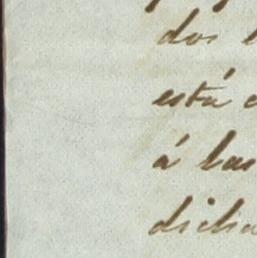 dos
está
á las
dicha